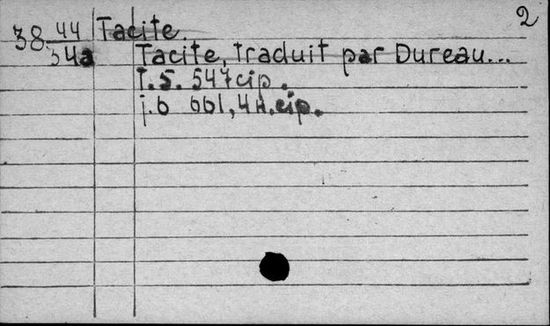 2
38 44/34a Tacite.
Tacite, traduit par Dureau...
t.5. 547 cip.
t.6 661, 4 н. cip.